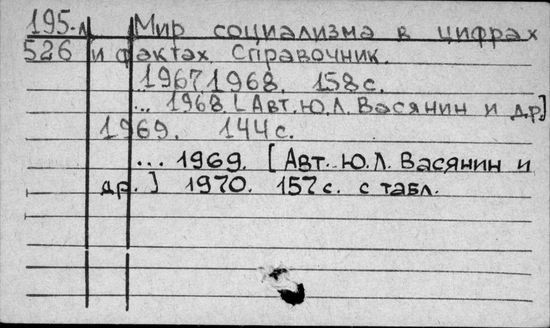 195-л Мир социализма в цифрах
526 и фактах. Справочник.
1967 1968. 158 с.
... 1968 [Авт. Ю.Л. Васянин и др.]
1969. 144 с.
... 1969. [Авт. Ю.Л. Васянин и
др.] 1970. 157 с. с табл.